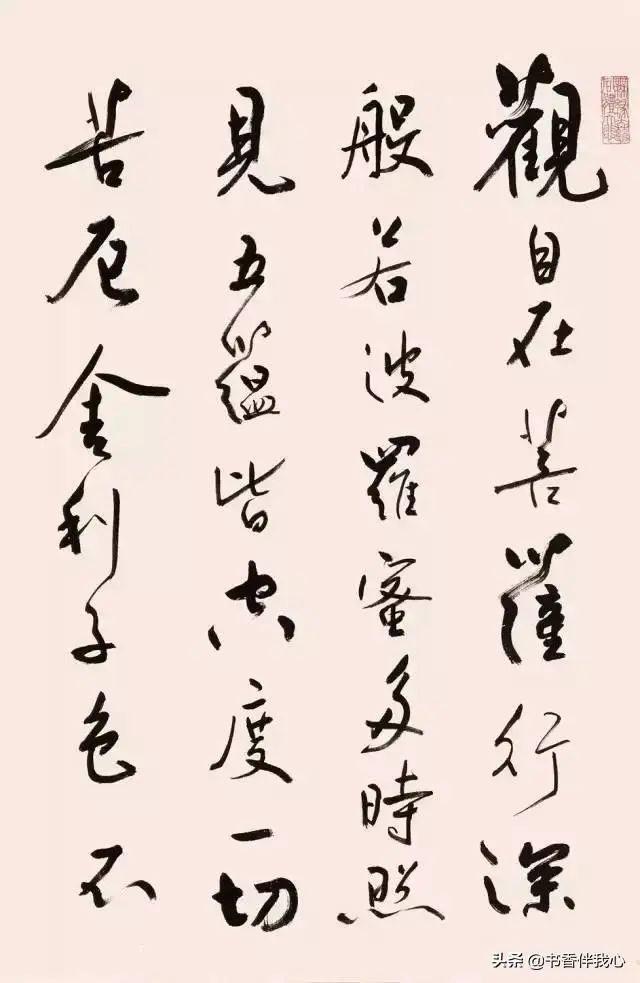 觀自在菩薩行深
般若波羅蜜多時照
見五蘊皆空度一切
苦厄舍利子色不
头条 @书香伴我心